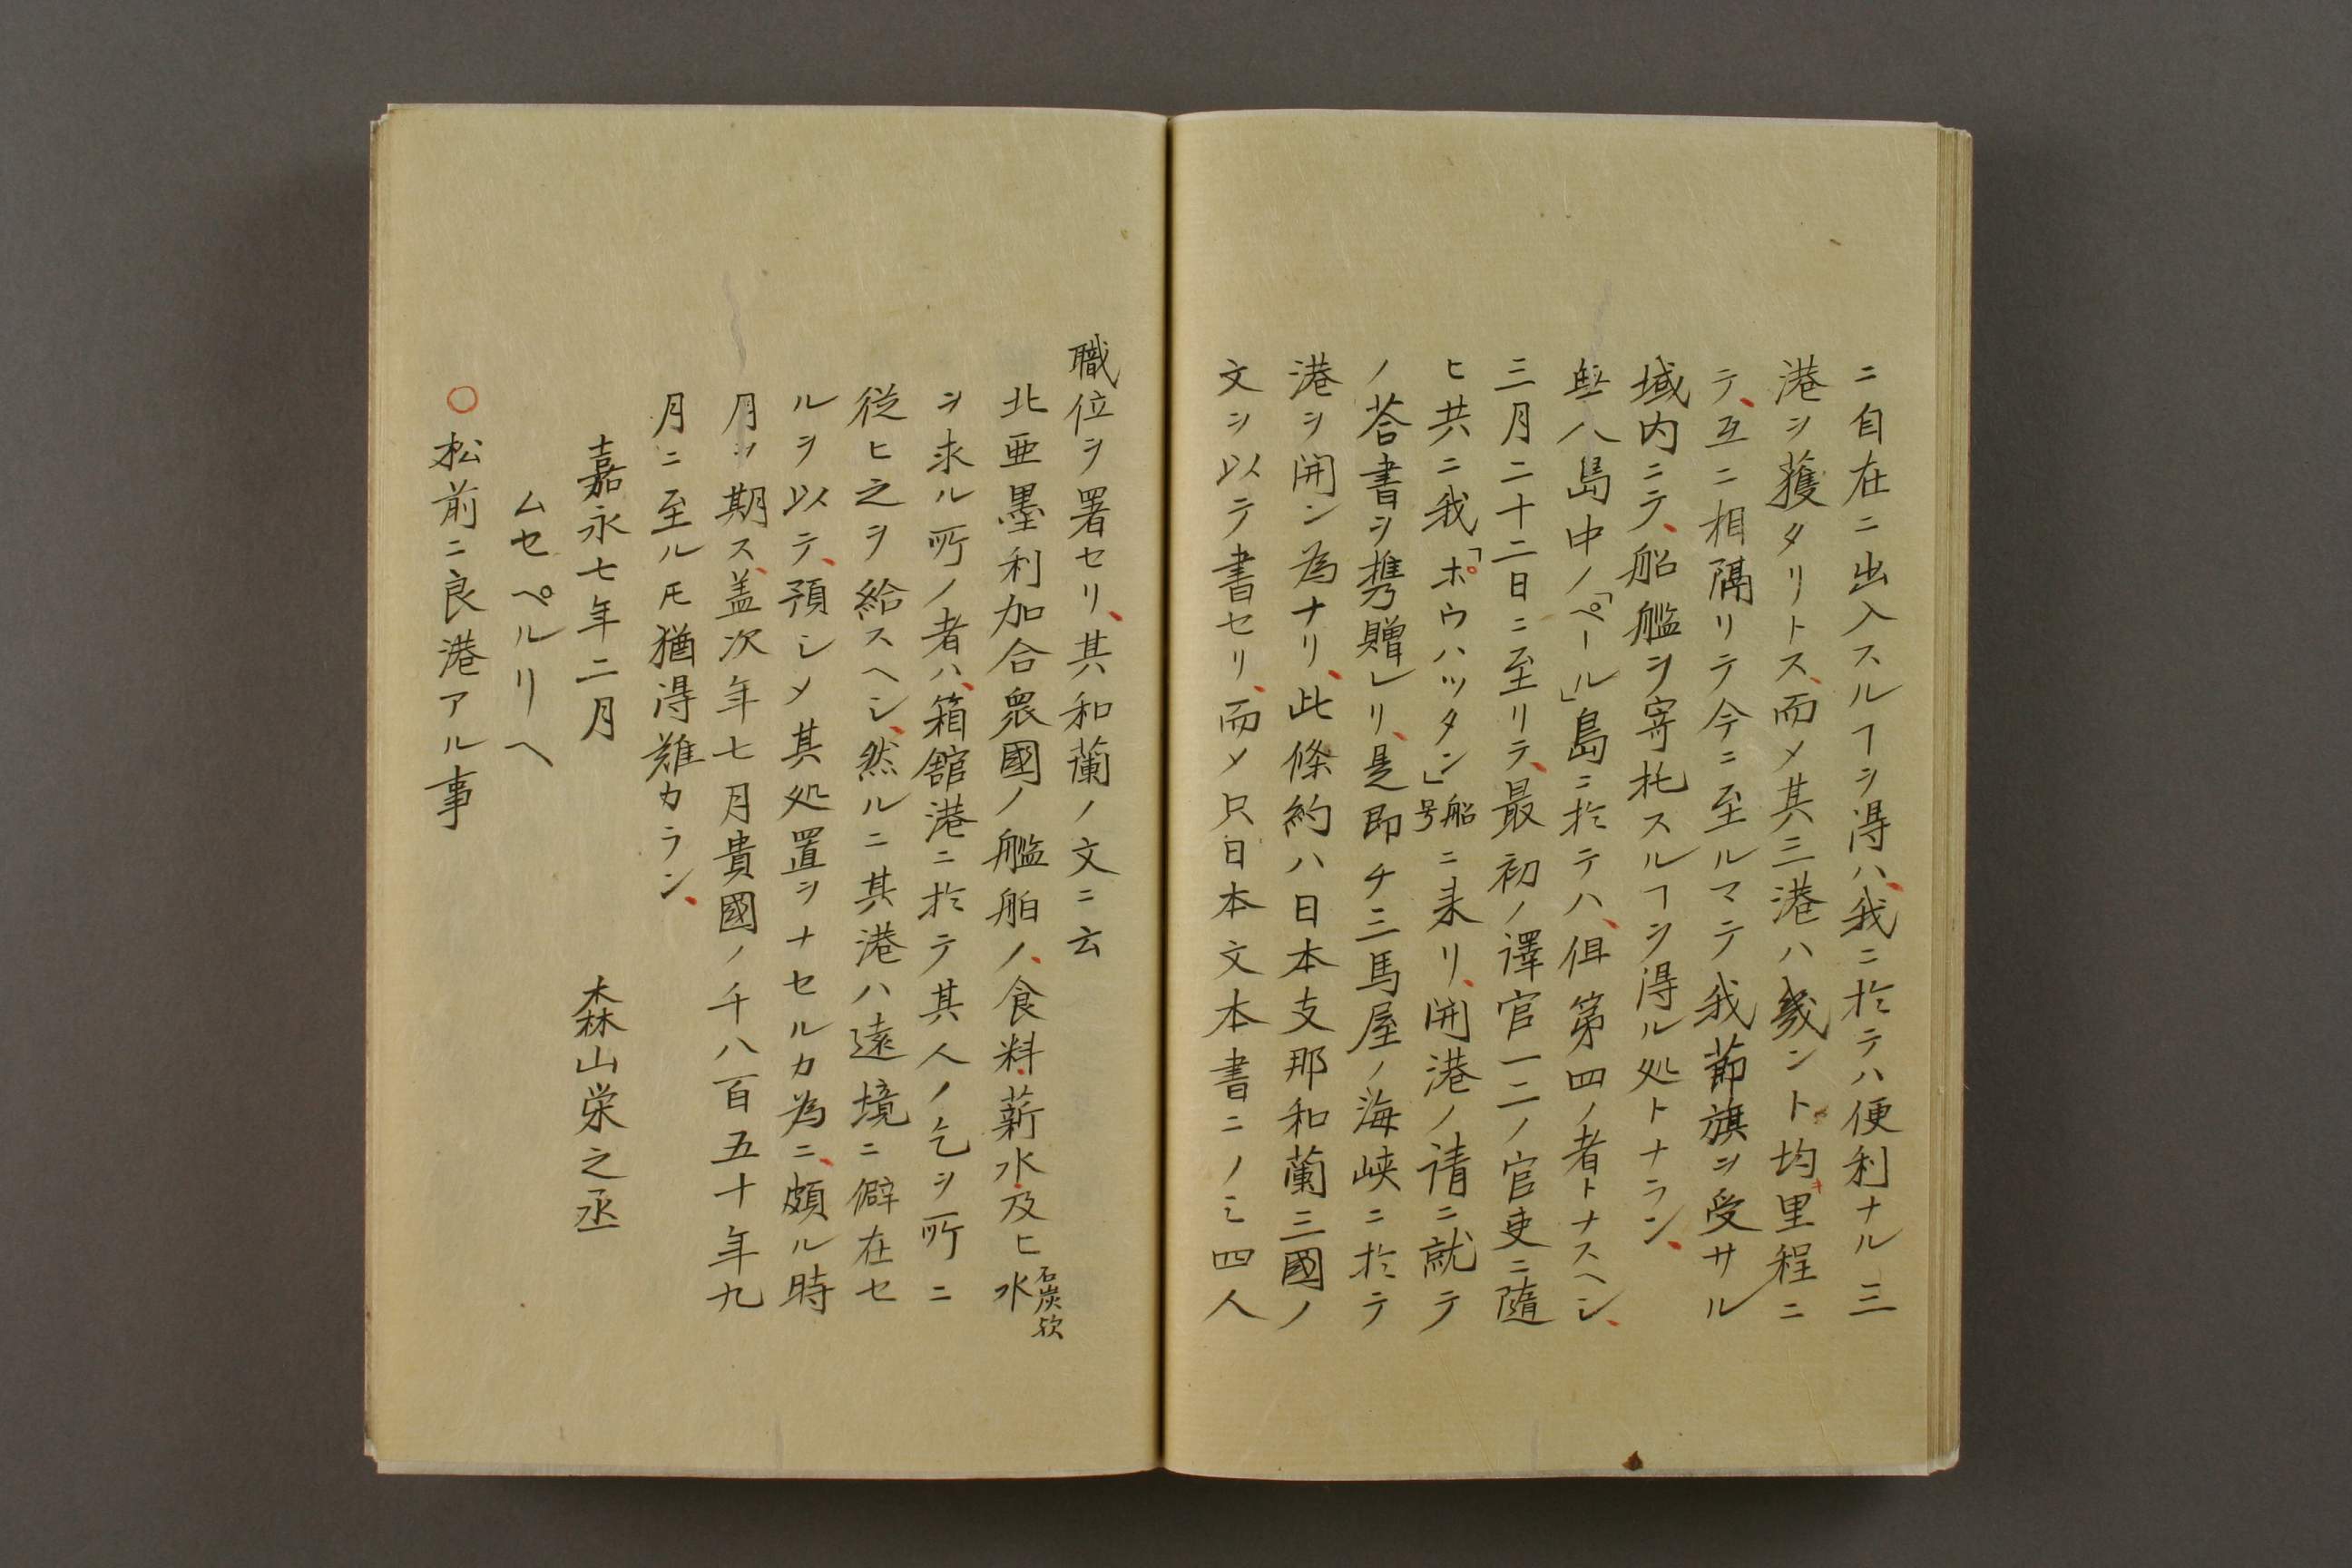 ニ自在ニ出入スルヿヲ得ハ、我ニ於テハ便利ナル三
港ヲ獲タリトス、而メ其三港ハ幾ント均キ里程ニ
テ、互ニ相隔リテ今ニ至ルマテ我節旗ヲ受サル
域内ニテ、船艦ヲ寄托スルヿヲ得ル処トナラン、
無人島中ノ「ペール」島ニ於テハ、但第四ノ者トナスヘシ、
三月二十二日ニ至リテ、最初ノ譯官一二ノ官吏ニ隨
ヒ共ニ我「ポウハッタン」船号ニ来リ、開港ノ請ニ就テ
ノ荅書ヲ携贈レリ、是即チ三馬屋ノ海峡ニ於テ
港ヲ開ン為ナリ、此條約ハ日本支那和蘭三國ノ
文ヲ以テ書セリ、而メ只日本文本書ニノミ四人
職位ヲ署セリ、其和蘭ノ文ニ云
北亜墨利加合衆國ノ艦舶ノ、食料、薪水、及ヒ水石炭欤
ヲ求ル所ノ者ハ、箱舘港ニ於テ其人ノ乞ヲ所ニ
従ヒ之ヲ給スヘシ、然ルニ其港ハ遠境ニ僻在セ
ルヲ以テ、預シメ其処置ヲナセルカ為ニ、頗ル時
月ヲ期ス、盖次年七月貴國ノ千八百五十年九
月ニ至ルモ猶得難カラン、
嘉永七年二月　森山栄之丞
ムセペルリヘ
○松前ニ良港アル事